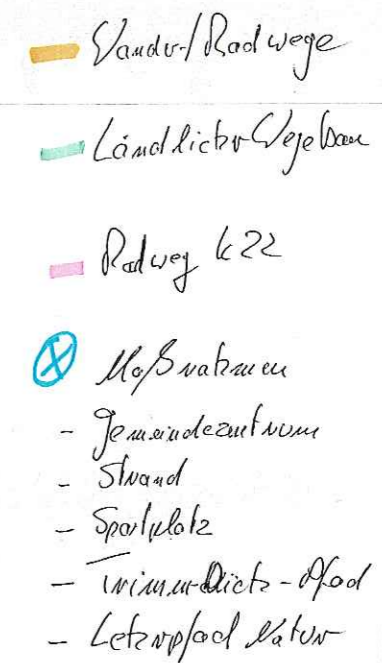 Wander-/Radwege
Ländlicher Wegebau
Radweg K22
Maßnahmen
- Gemeindezentrum
- Strand
- Sportplatz
- Trimm-Dich-Pfad
- Lehrpfad Natur